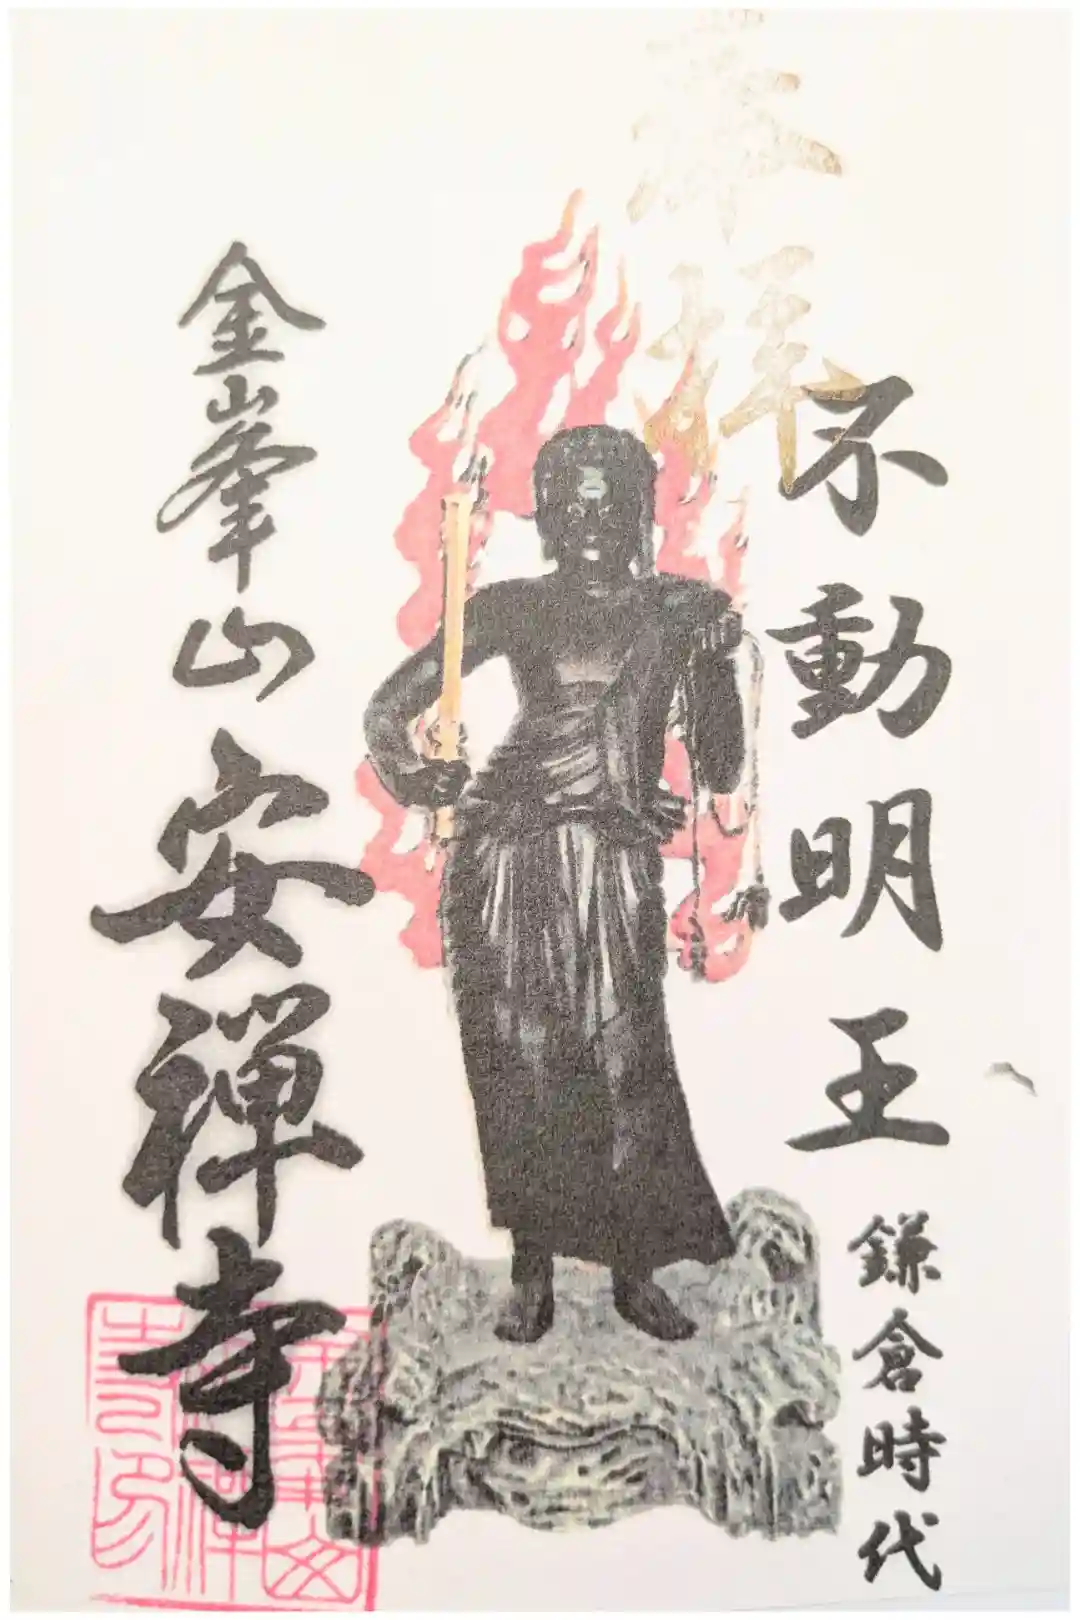 奉拝
不動明王
鎌倉時代
金峯山安禅寺